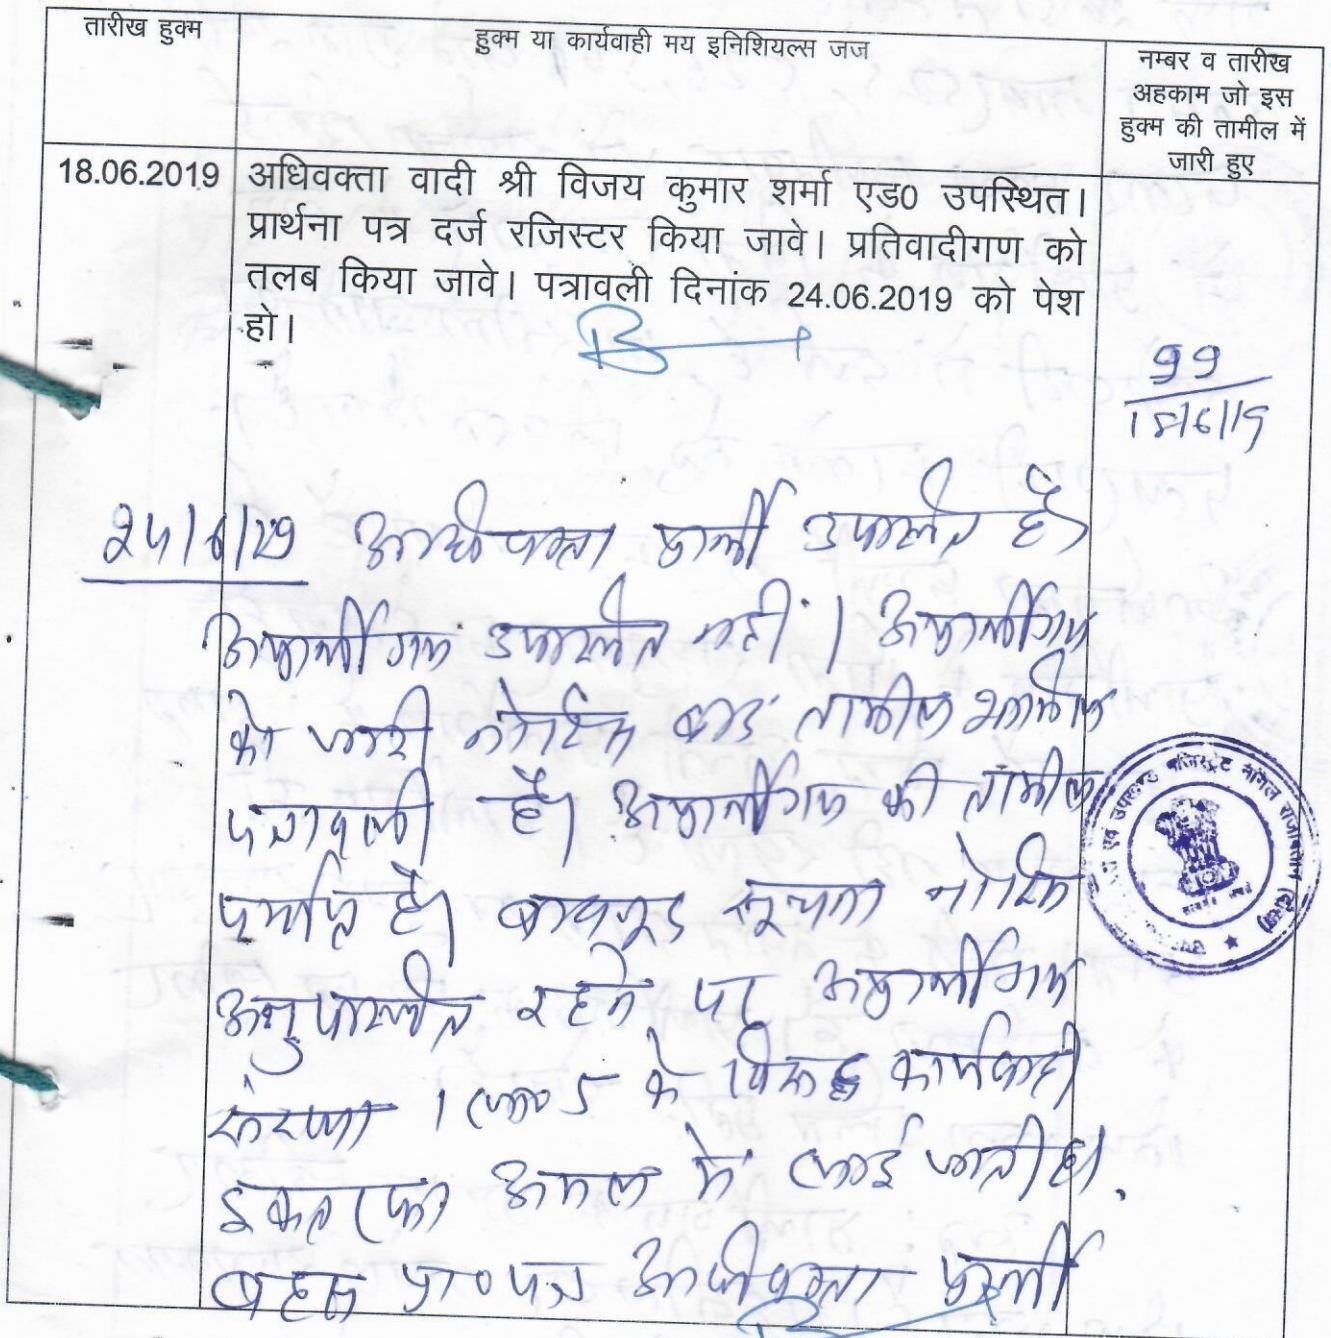 तारीख हुक्म
हुक्म या कार्यवाही मय इनिशियल्स जज
नम्बर व तारीख
अहकाम जो इस
हुक्म की तामील में
जारी हुए
18.06.2019
अधिवक्ता वादी श्री विजय कुमार शर्मा एड0 उपस्थित।
प्रार्थना पत्र दर्ज रजिस्टर किया जावे। प्रतिवादीगण को
तलब किया जावे। पत्रावली दिनांक 24.06.2019 को पेश
हो।
99
18/6/19
24/6/19 अधिवक्ता प्रार्थी उपस्थित है।
अप्रार्थीगण उपस्थित नहीं। अप्रार्थीगण
को जारी नोटिस बाद तामील शामिल
पत्रावली है। अप्रार्थीगण की तामील
पर्याप्त है। बावजूद सूचना नोटिस
अनुपस्थित रहने पर अप्रार्थीगण
संख्या 1 के विरूद्ध कार्यवाही
इकतरफा अमल में लाई जाती है।
बहस प्रा० पत्र अधिवक्ता प्रार्थी
उपखण्ड मजिस्ट्रेट